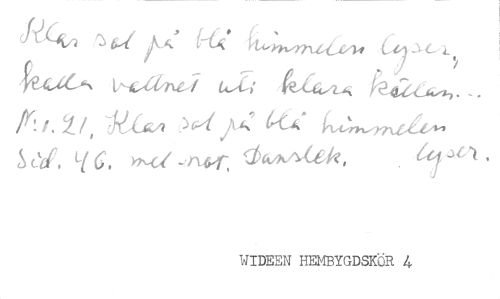 Klar sol på blå himmelen lyser,
kalla vattnet uti klara källan...
N:r. 21. Klar sol på blå himmelen
lyser.
Sid. 46. mel-not. Danslek.
WIDEEN HEMBYGDSKÖR 4